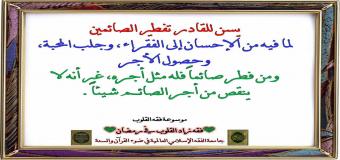 يسن للقادر تفطير الصائمين
لما فيه من الإحسان إلى الفقراء، وجلب المحبة،
وحصول الأجر
ومن فطر صائماً فله مثل أجره، غير أنه لا
ينقص من أجر الصائم شيئاً .
موسوعة فقه القلوب
فقه زاد القلوب في رمضان
جامعة الفقه الإسلامي العالمية في ضوء القرآن والسنة